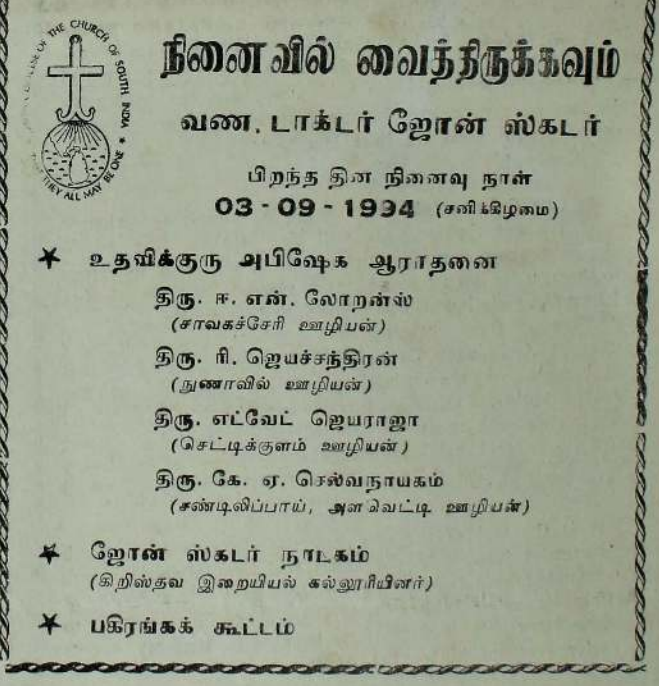 DIOCESE OF THE CHURCH OF SOUTH INDIA ★
THEY ALL MAY BE ONE ★
நினைவில் வைத்திருக்கவும்
வண. டாக்டர் ஜோன் ஸ்கடர்
பிறந்த தின நினைவு நாள்
03 - 09 - 1994 (சனிக்கிழமை)
★ உதவிக்குரு அபிஷேக ஆராதனை
திரு. ஈ. என். லோறன்ஸ்
(சாவகச்சேரி ஊழியன்)
திரு. ரி. ஜெயச்சந்திரன்
(நுணாவில் ஊழியன்)
திரு. எட்வேட் ஜெயராஜா
(செட்டிக்குளம் ஊழியன்)
திரு. கே. ஏ. செல்வநாயகம்
(சண்டிலிப்பாய், அளவெட்டி ஊழியன்)
★ ஜோன் ஸ்கடர் நாடகம்
(கிறிஸ்தவ இறையியல் கல்லூரியினர்)
★ பகிரங்கக் கூட்டம்